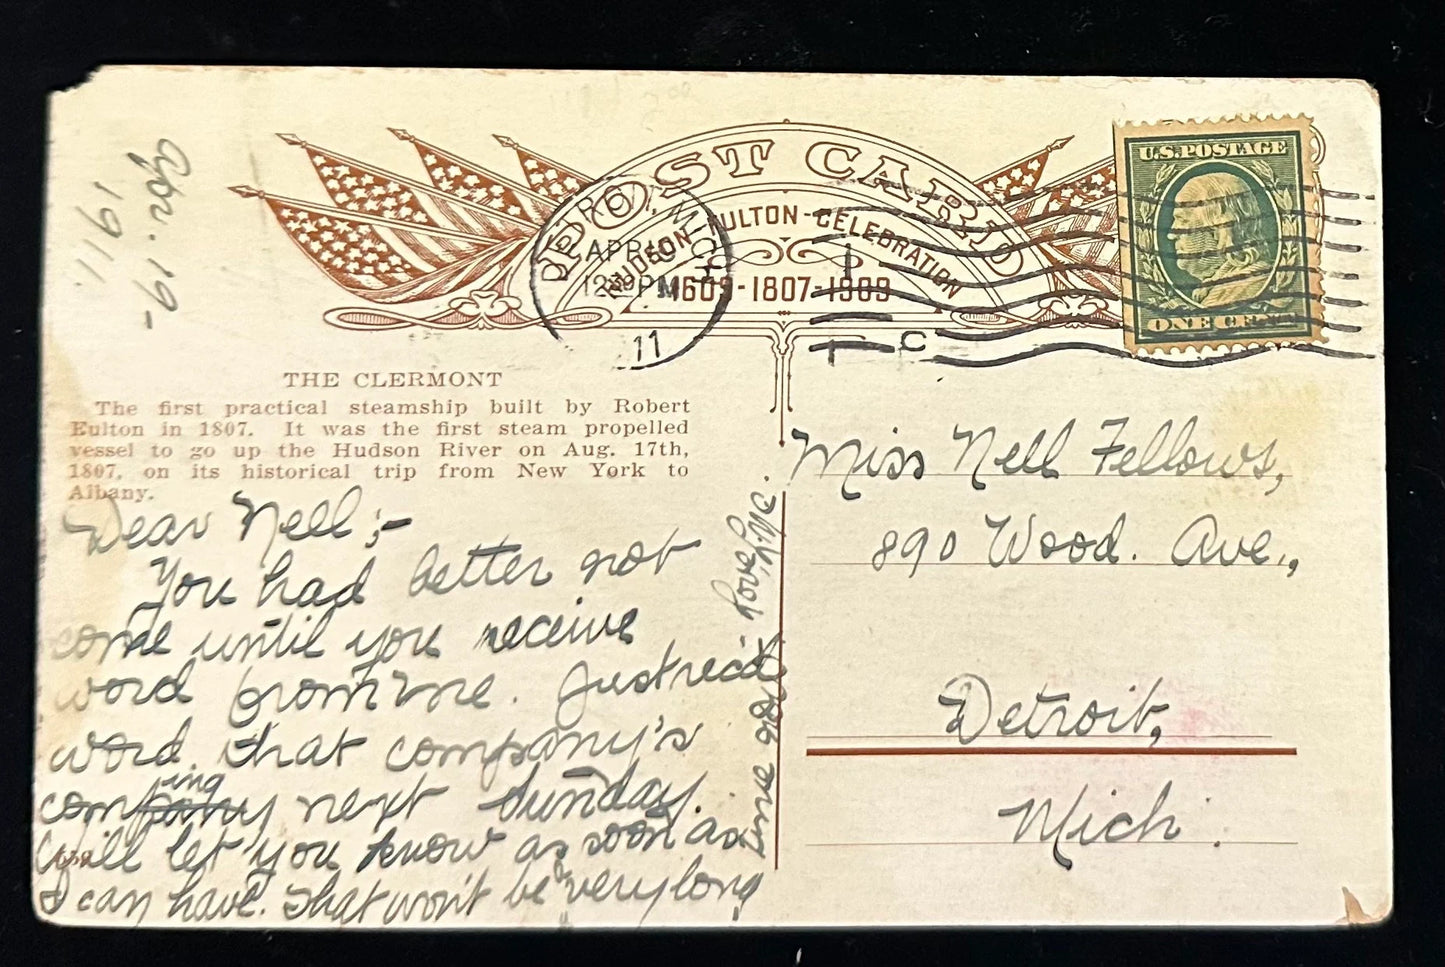 Apr. 19-
1911.
POST CARD
HUDSON-FULTON-CELEBRATION
1609-1807-1909
DETROIT, MICH.
APR 19
12 PM
11
1
C
U.S. POSTAGE
ONE CENT
THE CLERMONT
The first practical steamship built by Robert
Fulton in 1807. It was the first steam propelled
vessel to go up the Hudson River on Aug. 17th,
1807, on its historical trip from New York to
Albany.
Dear Nell;-
You had better not
come until you receive
word from me. Just rec'd
word that company's
coming next Sunday.
Will let you know as soon as
I can have. That won't be very long
Love
Miss Nell Fellows,
890 Wood. Ave.,
Detroit,
Mich.